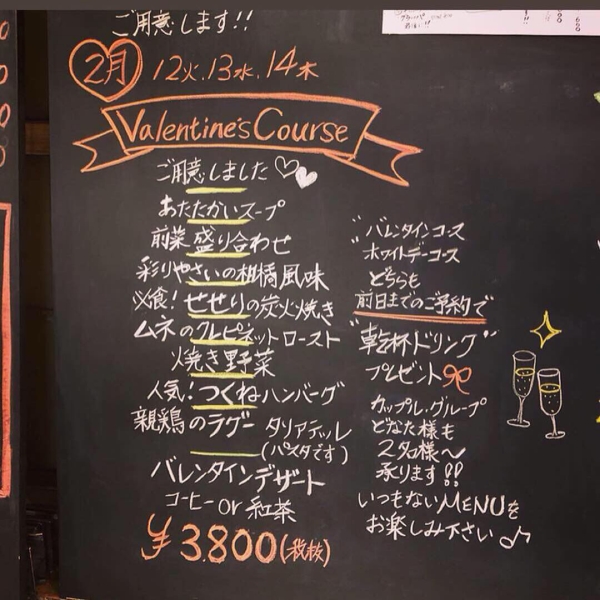 ご用意します!!
2月 12火.13水.14木
Valentine's Course
ご用意しました
あたたかいスープ
前菜盛り合わせ
彩りやさいの柑橘風味
必食!せせりの炭火焼き
ムネのクレピネットロースト
焼き野菜
人気!つくねハンバーグ
親鶏のラグー タリアテッレ
(パスタです)
バレンタインデザート
コーヒーor紅茶
¥3.800(税抜)
"バレンタインコース
"ホワイトデーコース
どちらも
前日までのご予約で
"乾杯ドリンク"
プレゼント
カップル.グループ
どなた様も
2名様〜
承ります!!
いつもないMENUを
お楽しみ下さい♪